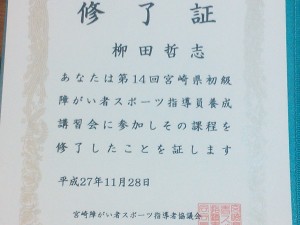 修了証
柳田哲志
あなたは第14回宮崎県初級
障がい者スポーツ指導員養成
講習会に参加しその課程を
修了したことを証します
平成27年11月28日
宮崎障がい者スポーツ指導者協議会